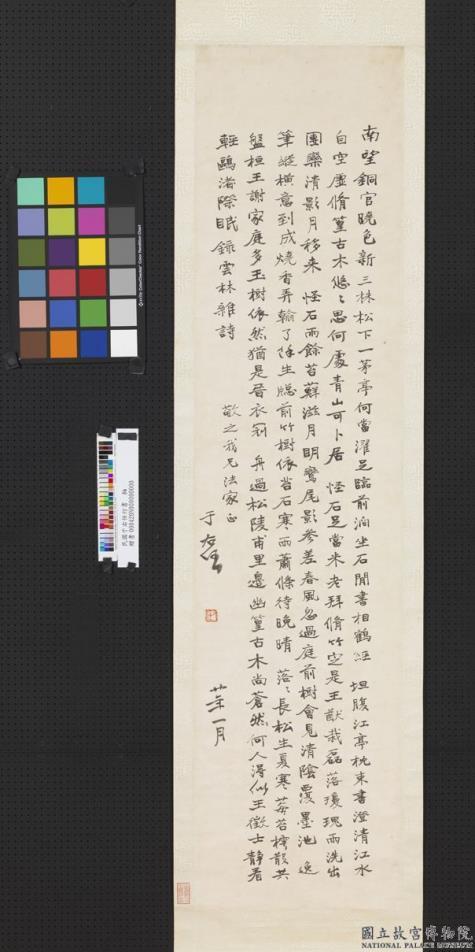 南望銅官曉色新三株松下一茅亭何當濯足臨前澗坐石閒書相鶴經 坦腹江亭枕束書澄清江水
自空虛脩篁古木悠〻思何處青山可卜居 怪石足當米老拜脩竹定是王猷栽磊落瓊瑰雨洗出
團欒清影月移來 怪石雨餘苔蘚滋月明鸞尾影參差春風忽過庭前樹會見清陰覆墨池 逸
筆縱橫意到成燒香弄翰了餘生窗前竹樹依苔石寒雨蕭條待晚晴 落〻長松生夏寒莓苔樗散共
盤桓王謝家庭多玉樹依然猶是晉衣冠 舟過松陵甫里邊幽篁古木尚蒼然何人得似王徵士靜看
輕鷗渚際眠 錄雲林雜詩
敬之我兄法家正
于右任
廿年一月
民國于右任行書 軸
國立故宮博物院
NATIONAL PALACE MUSEUM